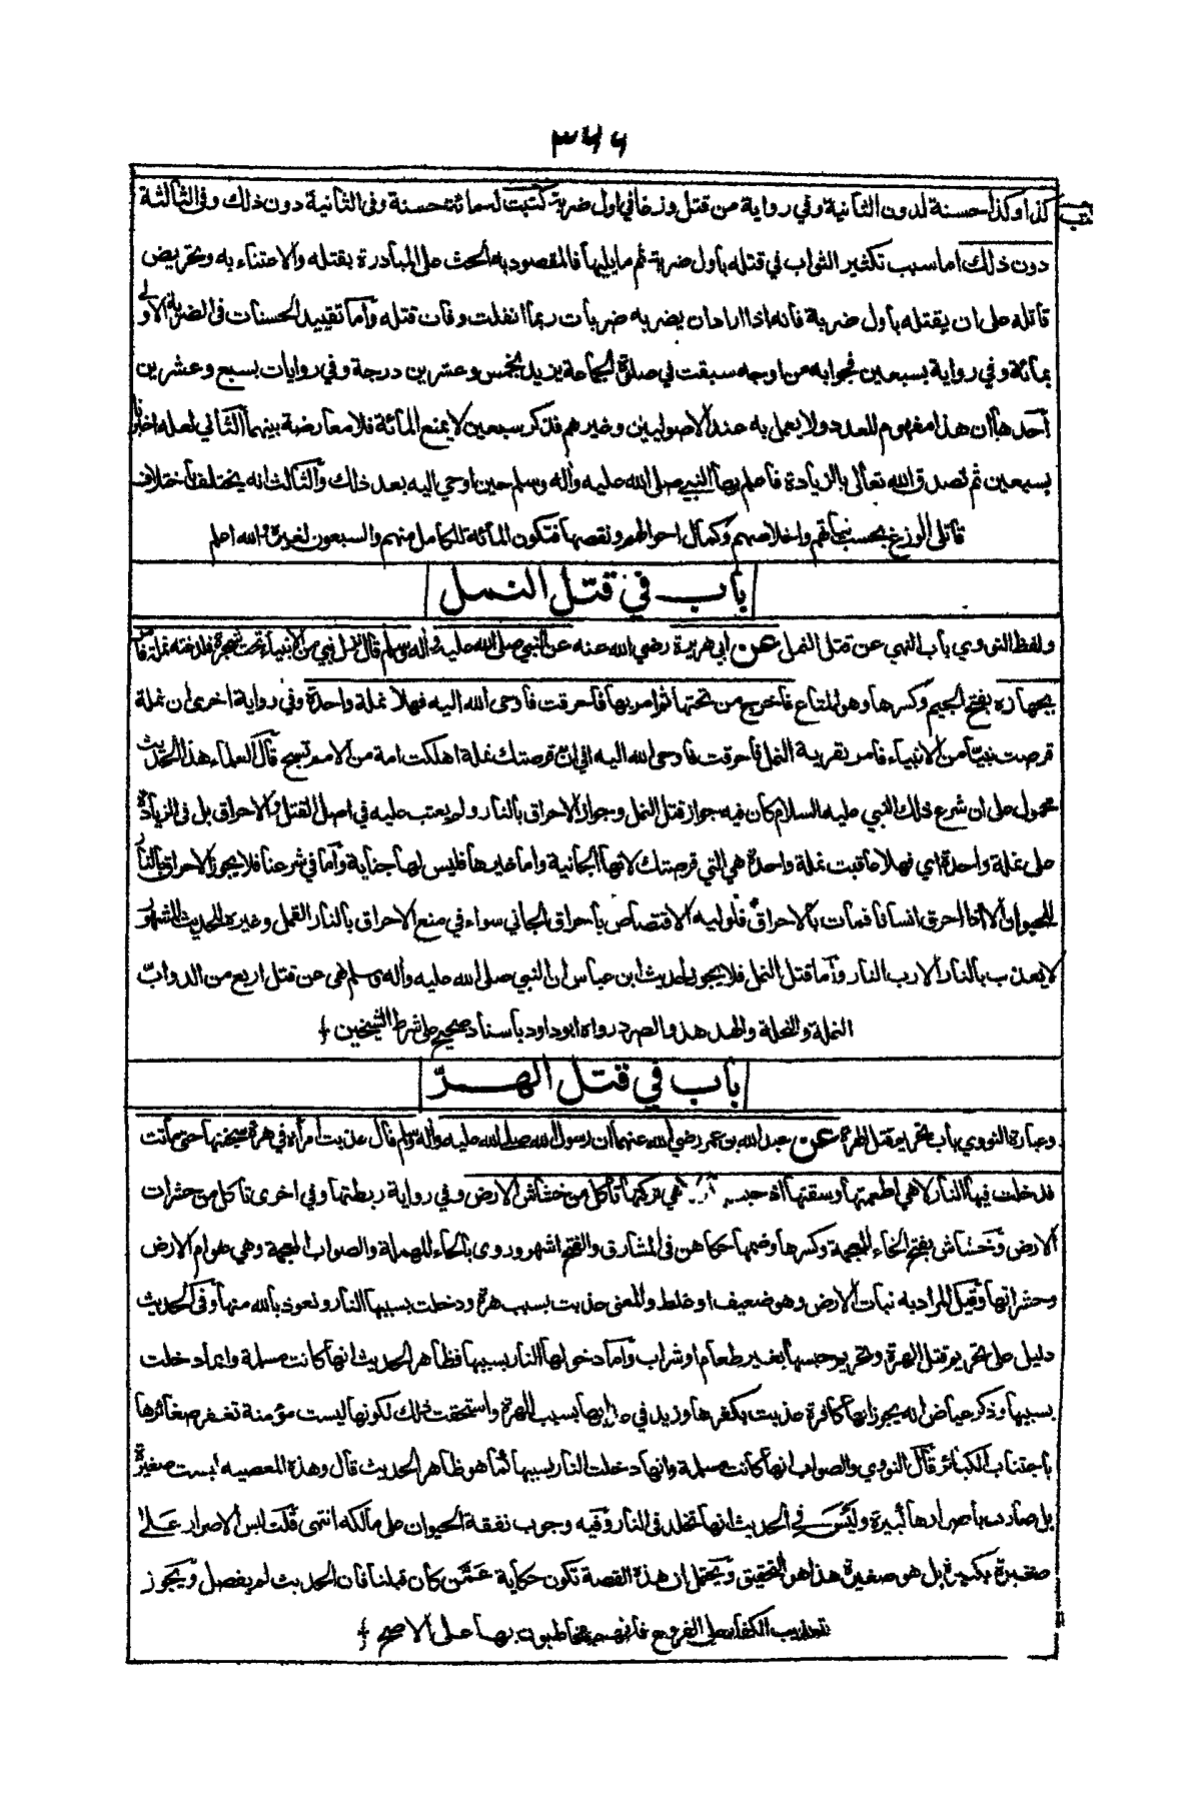 ٣٦٦
كذا وكذا حسنة لدون الثانية وفي رواية من قتل وزغا في اول ضربة كتبت له مائة حسنة وفى الثانية دون ذلك وفى الثالثة
دون ذلك اما سبب تكثير الثواب في قتله بأول ضربة ثم ما يليها فالمقصود به الحث على المبادرة بقتله والاعتناء به وتحريض
قاتله على ان يقتله بأول ضربة فأنه اذا اراد ان يضربه ضربات ربما انفلت وفات قتله وأما تقييد الحسنات فى الضربة الاولى
بمائة وفي رواية بسبعين فجوابه من اوجه سبقت في صلوة الجماعة يزيد بخمس وعشرين درجة وفي روايات بسبع وعشرين
أحدها أن هذا مفهوم للعدد ولا يعمل به عند الاصوليين وغيرهم فذكر سبعين لا يمنع المائة فلا معارضة بينهما الثاني لعله اخبرنا
بسبعين ثم تصدق الله تعالى بالزيادة فأعلم بها النبي صلى الله عليه وأله وسلم حين اوحي اليه بعد ذلك والثالث انه يختلف باختلاف
قاتلى الوزغ بحسب نياتهم واخلاصهم وكمال احوالهم ونقصها فتكون المائة للكامل منهم والسبعون لغيره والله اعلم
باب في قتل النمل
ولفظ النووي باب النهي عن قتل النمل عن ابي هريرة رضي الله عنه عن النبي صلى الله عليه وأله وسلم قال نزل نبي من الانبياء تحت شجرة فلدغته نملة فأمر
بجهازه بفتح الجيم وكسرها وهو المتاع فأخرج من تحتها ثم امر بها فأحرقت فأوحى الله اليه فهلا نملة واحدة وفي رواية اخرى ان نملة
قرصت نبيّا من الانبياء فأمر بقرية النمل فأحرقت فأوحى الله اليه افي ان قرصتك نملة اهلكت امة من الامم تسبح قال العلماء هذا الحديث
محمول على ان شرع ذلك النبي عليه السلام كان فيه جواز قتل النمل وجواز الاحراق بالنار ولم يعتب عليه في اصل القتل والاحراق بل فى الزيادة
على نملة واحدة اي فهلا عاقبت نملة واحدة هي التي قرصتك لانها الجانية واما غيرها فليس لها جناية وأما في شرعنا فلا يجوز الاحراق بالنار
للحيوان الا اذا احرق انسانا فمات بالاحراق فلوليه الاقتصاص بأحراق الجاني سواء في منع الاحراق بالنار القمل وغيره للحديث المشهور
لا يعذب بالنار الا رب النار وأما قتل النمل فلا يجوز لحديث ابن عباس ان النبي صلى الله عليه وأله وسلم نهى عن قتل اربع من الدوابّ
النملة والنحلة والهدهد والصرد رواه ابو داود بأسناد صحيح على شرط الشيخين
باب في قتل الهرّ
وعبارة النووي باب تحريم قتل الهرة عن عبد الله بن عمر رضي الله عنهما أن رسول الله صلى الله عليه وأله وسلم قال عذبت امرأة في هرة سجنتها حتى ماتت
فدخلت فيها النار لا هي اطعمتها وسقتها اذ حبستها ... هي تركتها تأكل من خشاش الارض وفي رواية ربطتها وفي اخرى تأكل من حشرات
الارض وخشاش بفتح الخاء المعجمة وكسرها وضمها حكاهن فى المشارق والفتح اشهر وروى بالحاء المهملة والصواب المعجمة وهي هوام الارض
وحشراتها وقيل المراد به نبات الارض وهو ضعيف او غلط والمعنى عذبت بسبب هرة ودخلت بسببها النار ونعوذ بالله منها وفى الحديث
دليل على تحريم قتل الهرة وتحريم حبسها بغير طعام او شراب وأما دخولها النار بسببها فظاهر الحديث انها كانت مسلمة وانما دخلت
بسببها وذكر عياض انه يجوز انها كافرة عذبت بكفرها وزيد في عذابها بسبب الهرة واستحقت ذلك لكونها ليست مؤمنة تغفر صغائرها
بأجتناب الكبائر قال النووي والصواب انها كانت مسلمة وانها دخلت النار بسببها كما هو ظاهر الحديث قال وهذه المعصية ليست صغيرة
بل صارت بأصرارها كبيرة وليس في الحديث انها تخلد فى النار وفيه وجوب نفقة الحيوان على مالكه انتهى قلت ليس الاصرار على
صغيرة بكبيرة بل هو صغيرة هذا هو التحقيق ويحتمل ان هذه القصة تكون حكاية عمّن كان قبلنا فأن الحديث لم يفصل ويجوز
تعذيب الكفار على الفروع فأنهم مخاطبون بها على الاصح